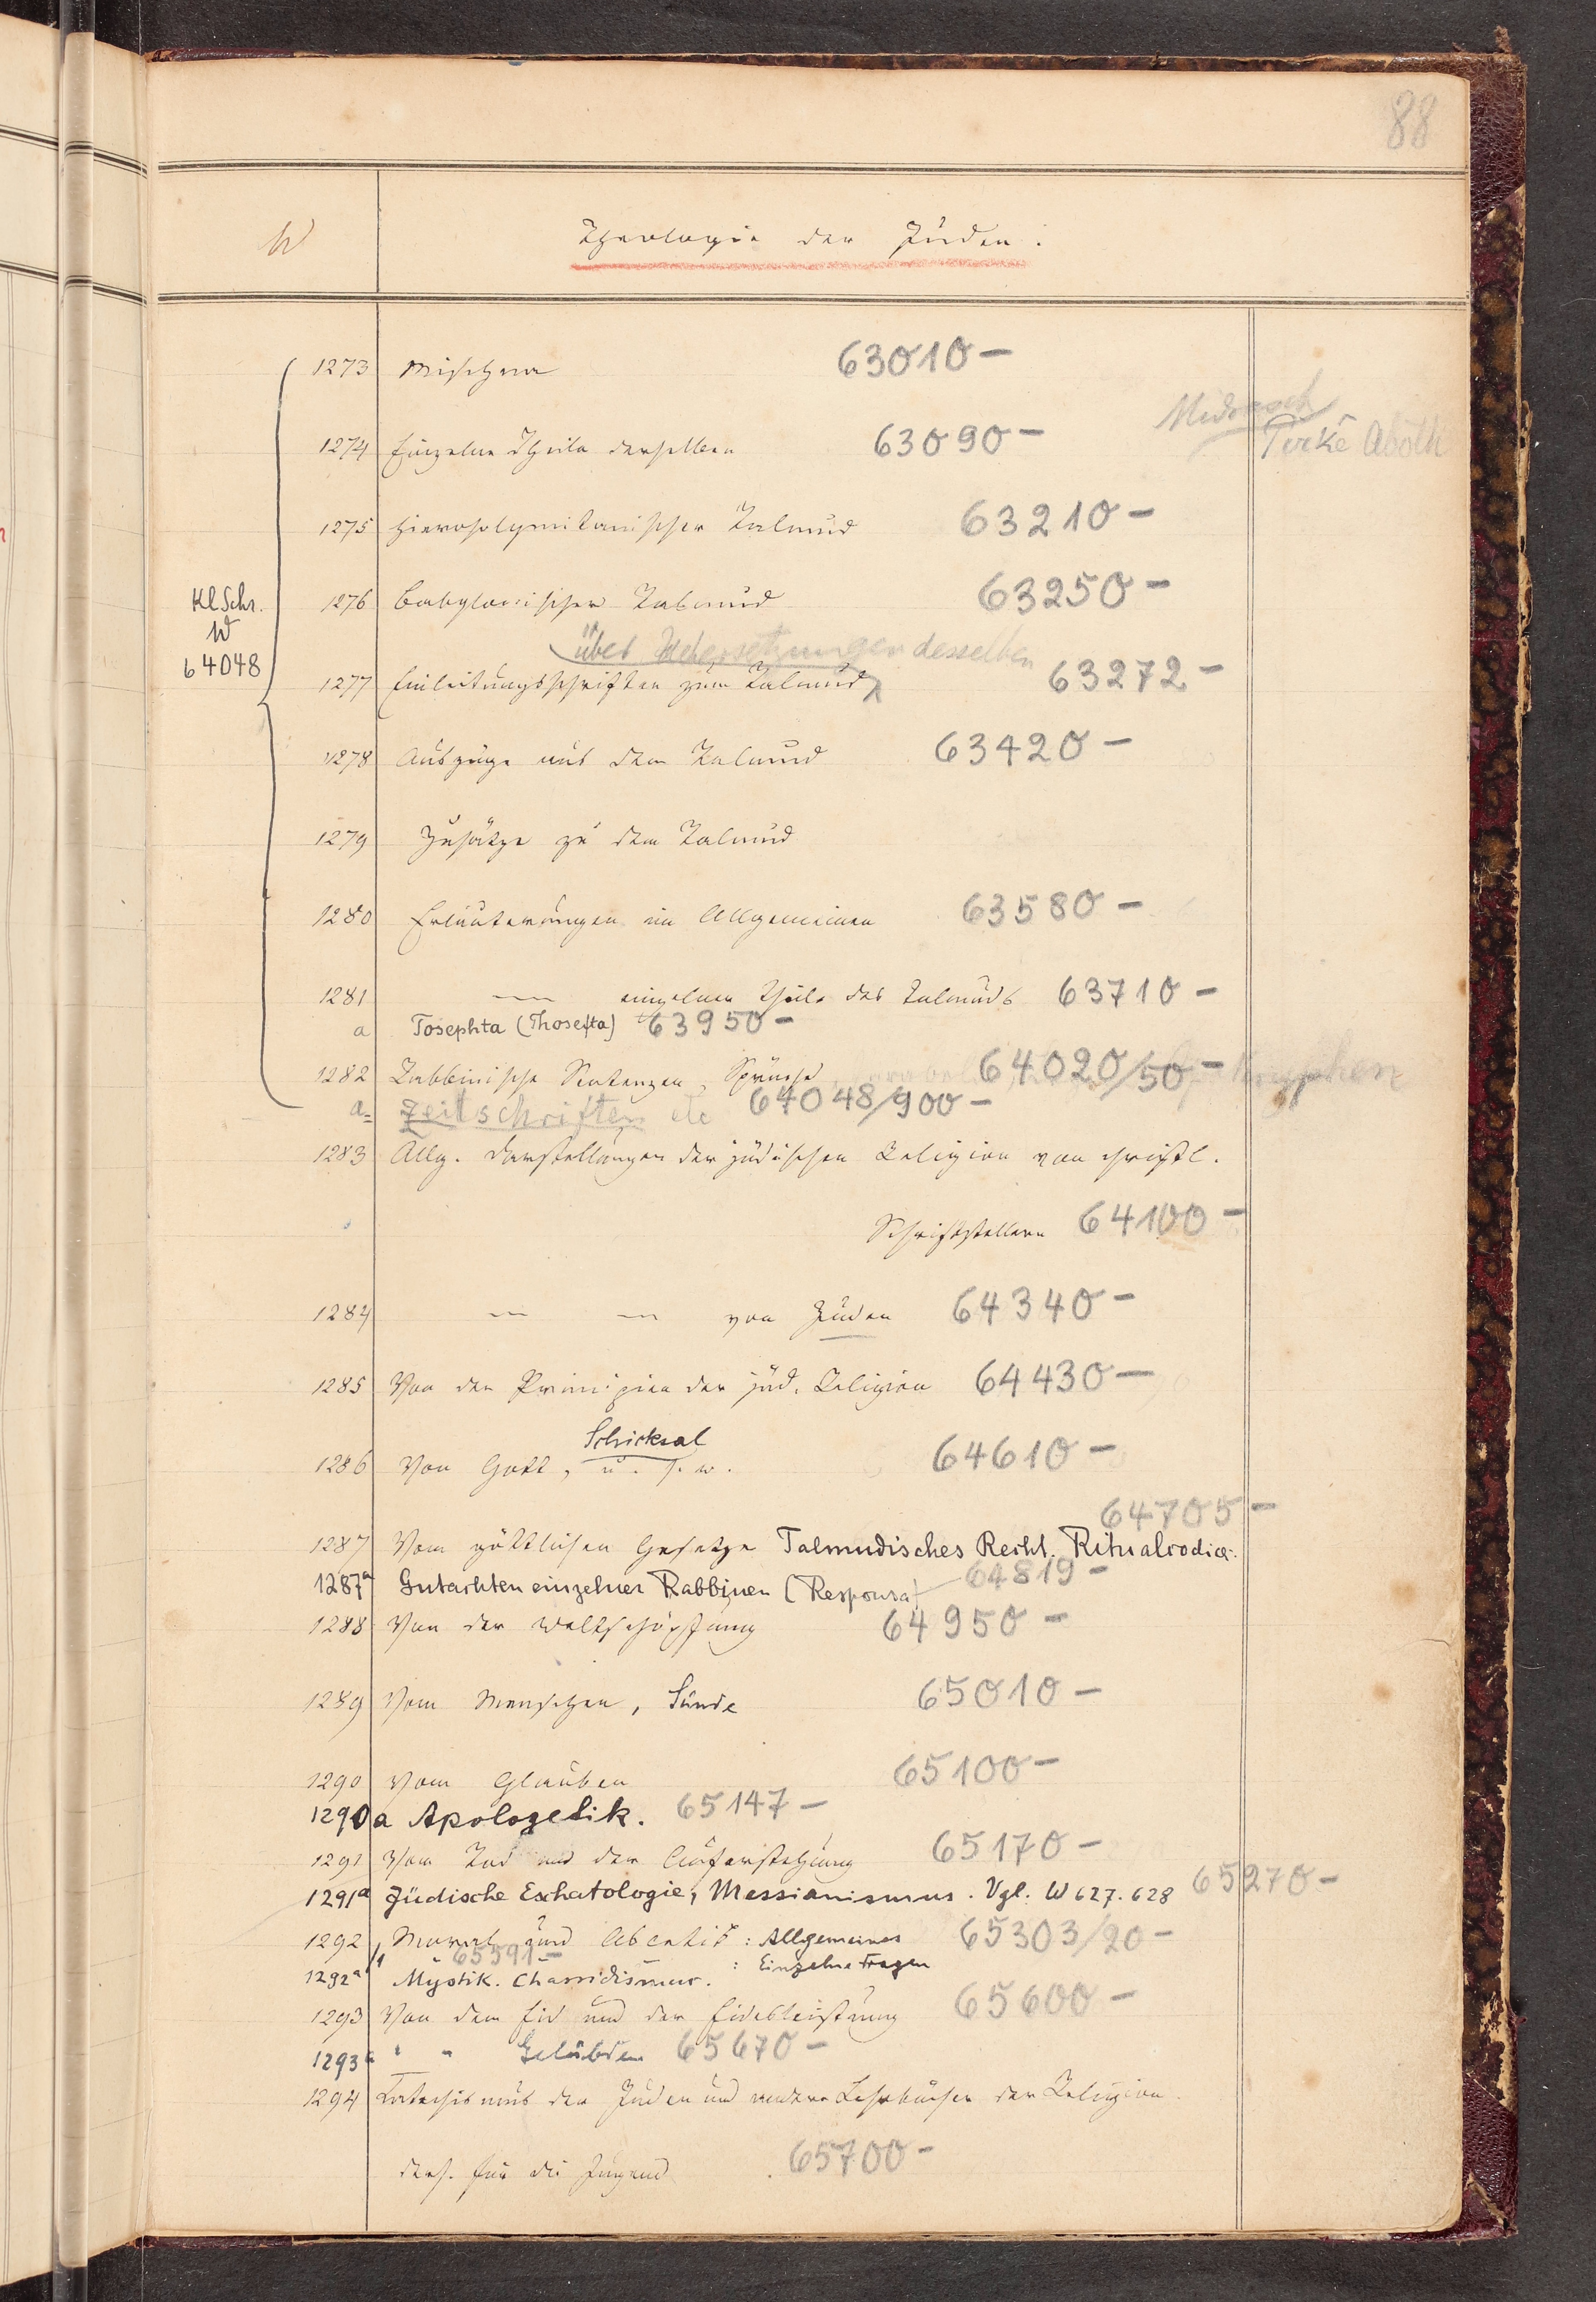 88
W
Theologie der Juden.
1273 Mischna 63010 –
Midrasch
1274 Einzelne Theile derselben 63090 – Pirkê Abôth
1275 Hierosolymitanischer Talmud 63210 –
Kl Schr.
W
64048
1276 Babylonischer Talmud 63250 –
über Uebersetzungen desselben
1277 Einleitungsschriften zum Talmud 63272 –
1278 Auszüge aus dem Talmud 63420 –
1279 Zusätze zu dem Talmud
1280 Erläuterungen im Allgemeinen 63580 –
1281 — einzelner Theile des Talmuds 63710 –
a Tosephta (Thosefta) 63950 –
1282 Rabbinische Sentenzen, Sprüche 64020/50 –
a= Zeitschriften etc 64048/900 –
1283 Allg. Darstellungen der jüdischen Religion von christl.
Schriftstellern 64100 –
1284 — — von Juden 64340 –
1285 Von den Principien der jüd. Religion 64430 –
Schicksal
1286 Von Gott, u. s. w. 64610 –
64705 –
1287 Vom göttlichen Gesetze Talmudisches Recht. Ritualcodices
1287a Gutachten einzelner Rabbinen (Responsa) 64819 –
1288 Von der Weltschöpfung 64950 –
1289 Vom Menschen, Sünde 65010 –
1290 Vom Glauben 65100 –
1290a Apologetik. 65147 –
1291 Vom Tod und der Auferstehung 65170 –
1291a Jüdische Eschatologie, Messianismus. Vgl. W 627. 628 65270 –
1292 Moral und Ascetik : Allgemeines 65303/20 –
65591 –
: Einzelne Fragen
1292a Mystik. Chassidismus.
1293 Von dem Eid und der Eidesleistung 65600 –
1293a " " Gelübden 65670 –
1294 Katechismus der Juden und andere Lehrbücher der Religion.
des. für die Jugend 65700 –